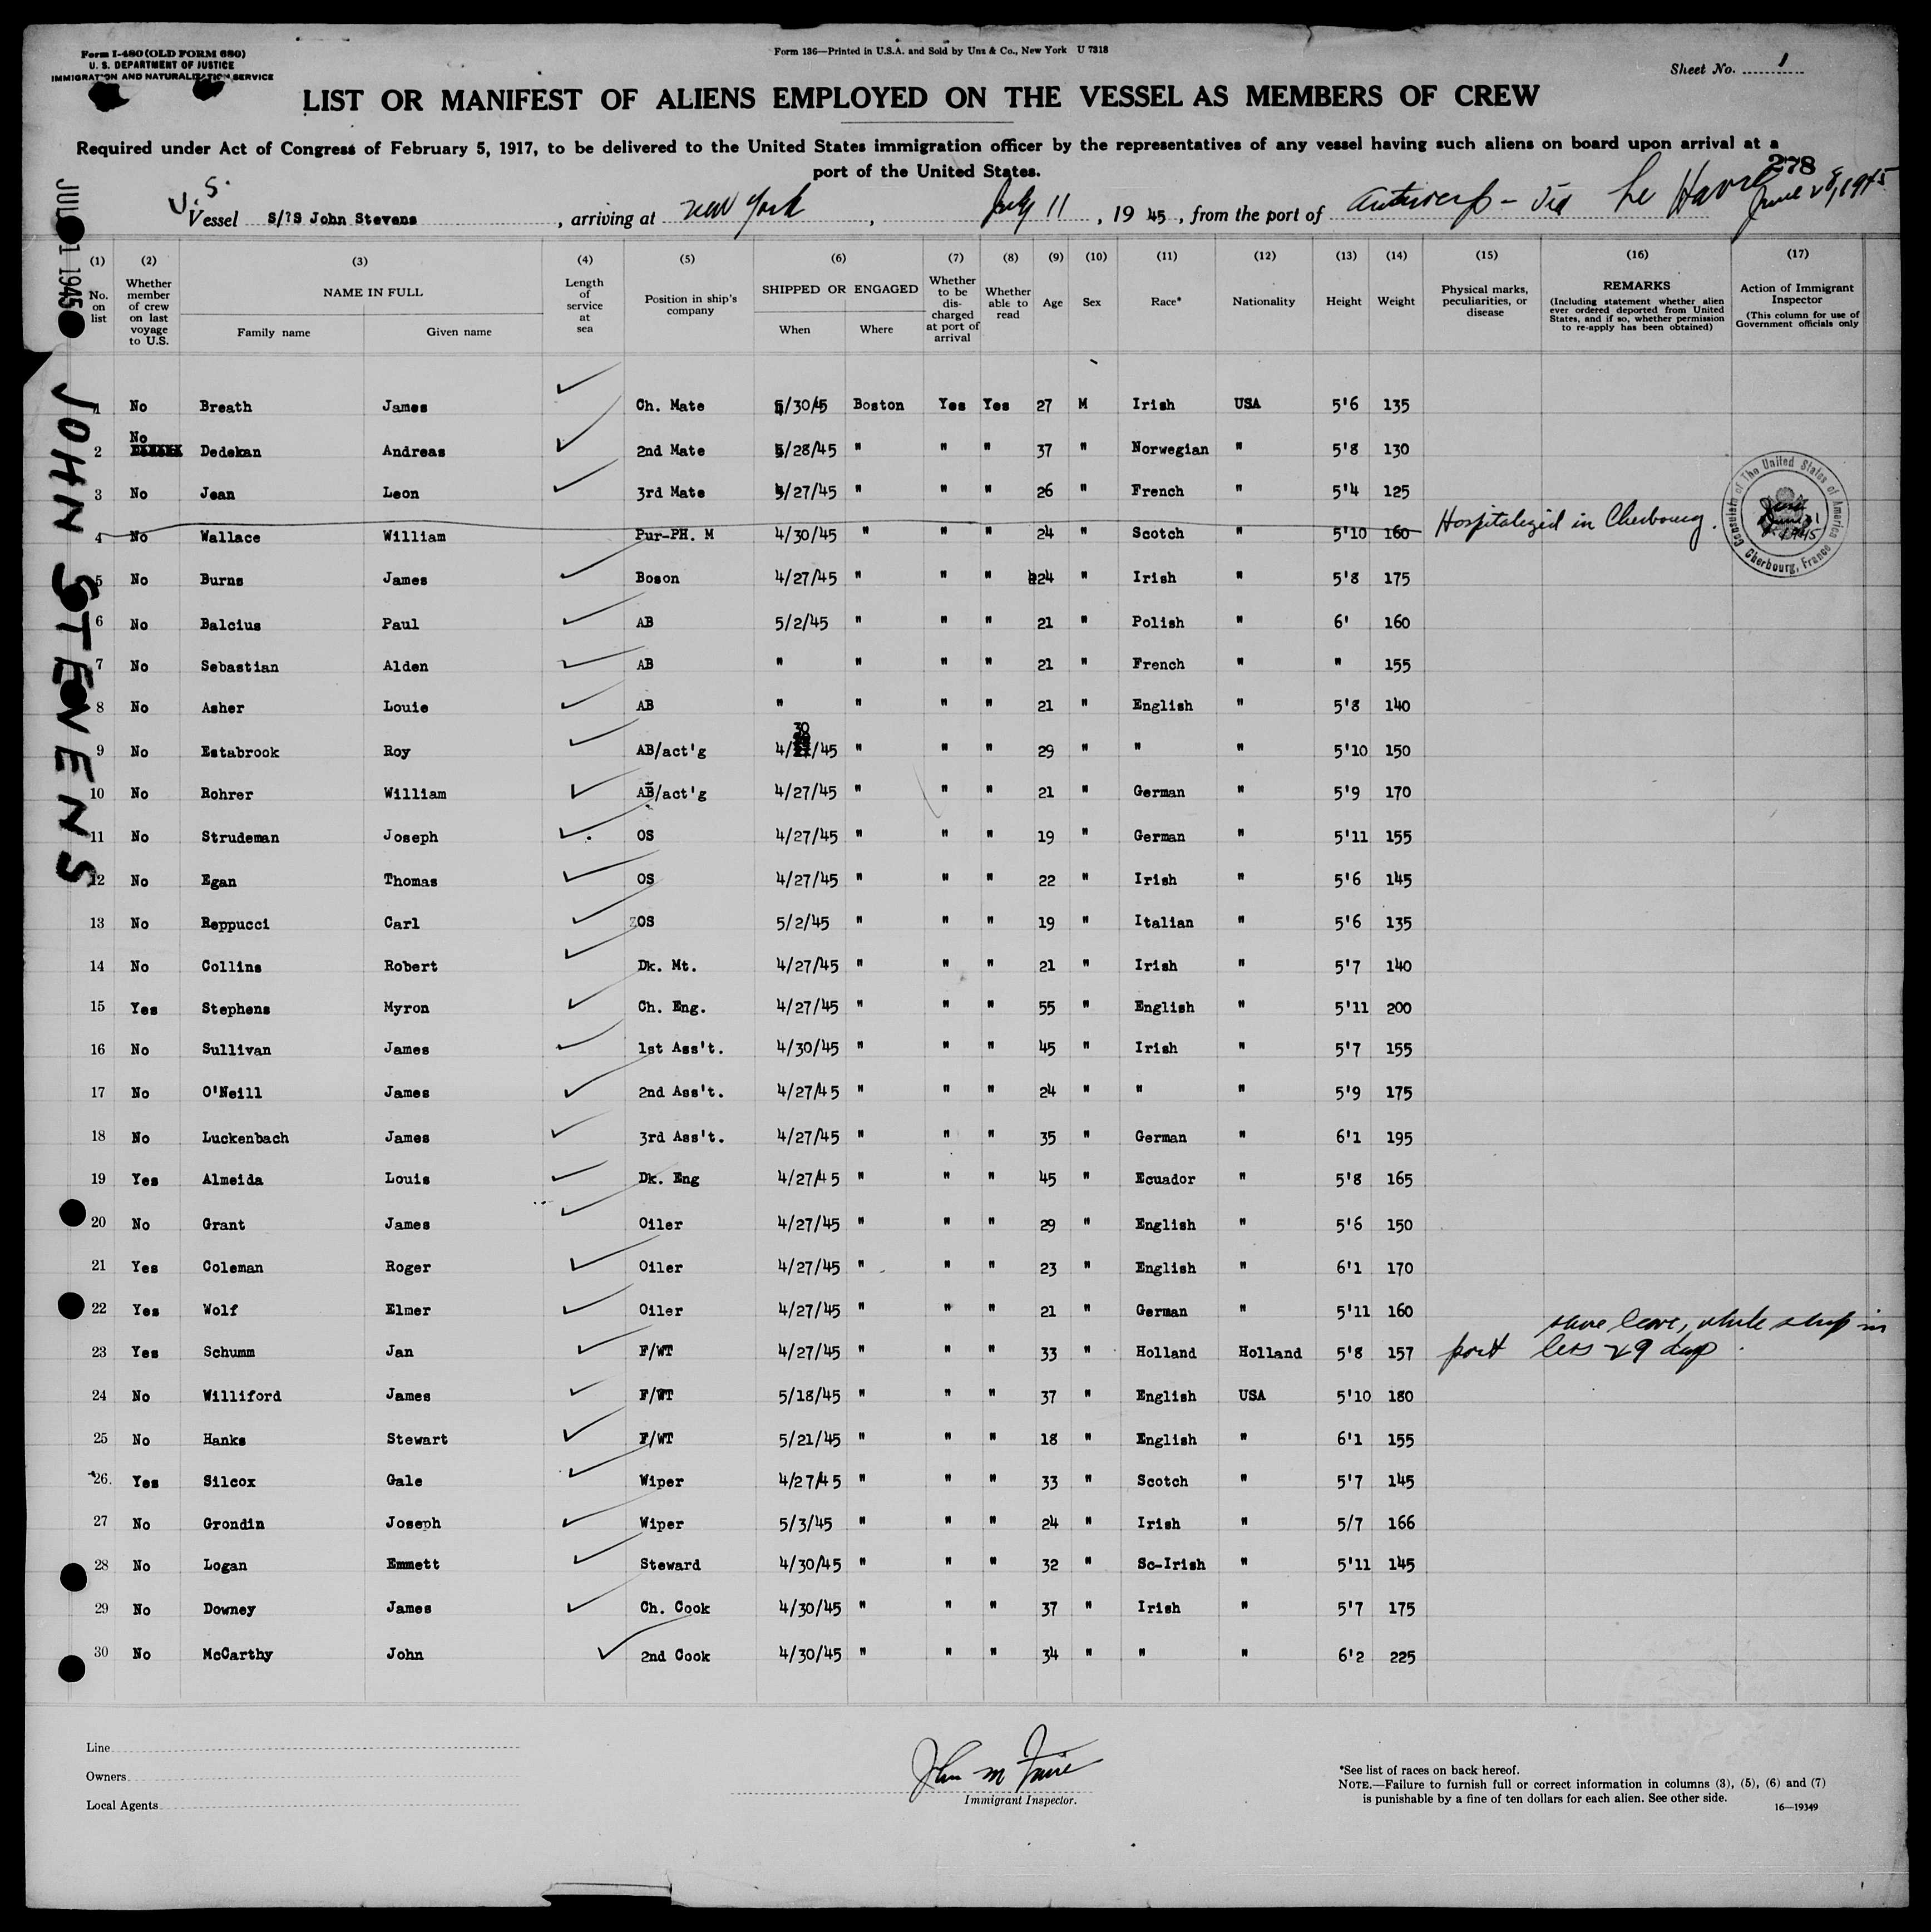 Form I-480 (OLD FORM 680)
U. S. DEPARTMENT OF JUSTICE
IMMIGRATION AND NATURALIZATION SERVICE
Form 136—Printed in U.S.A. and Sold by Unz & Co., New York U 7318
Sheet No. 1
LIST OR MANIFEST OF ALIENS EMPLOYED ON THE VESSEL AS MEMBERS OF CREW
Required under Act of Congress of February 5, 1917, to be delivered to the United States immigration officer by the representatives of any vessel having such aliens on board upon arrival at a
port of the United States.
278
U.S.
Vessel S/?S John Stevens, arriving at New York, July 11, 19 45, from the port of Antwerp - Via Le Havre June 28, 1945
JUL 11 1945
JOHN STEVENS
(1) (2) (3) (4) (5) (6) (7) (8) (9) (10) (11) (12) (13) (14) (15) (16) (17)
No. on list
Whether member of crew on last voyage to U.S.
NAME IN FULL
Family name Given name
Length of service at sea
Position in ship's company
SHIPPED OR ENGAGED
When Where
Whether to be discharged at port of arrival
Whether able to read
Age
Sex
Race*
Nationality
Height
Weight
Physical marks, peculiarities, or disease
REMARKS
(Including statement whether alien ever ordered deported from United States, and if so, whether permission to re-apply has been obtained)
Action of Immigrant Inspector
(This column for use of Government officials only
1 No Breath James Ch. Mate 5/30/45 Boston Yes Yes 27 M Irish USA 5'6 135
2 No Dedekan Andreas 2nd Mate 5/28/45 " " " 37 " Norwegian " 5'8 130
3 No Jean Leon 3rd Mate 5/27/45 " " " 26 " French " 5'4 125
4 No Wallace William Pur-PH. M 4/30/45 " " " 24 " Scotch " 5'10 160 Hospitalized in Cherbourg.
Consulate of The United States of America Cherbourg, France
5 No Burns James Boson 4/27/45 " " " 24 " Irish " 5'8 175
6 No Balcius Paul AB 5/2/45 " " " 21 " Polish " 6' 160
7 No Sebastian Alden AB " " " " 21 " French " " 155
8 No Asher Louie AB " " " " 21 " English " 5'8 140
9 No Estabrook Roy AB/act'g 4/30/45 " " " 29 " " " 5'10 150
10 No Rohrer William AB/act'g 4/27/45 " " " 21 " German " 5'9 170
11 No Strudeman Joseph OS 4/27/45 " " " 19 " German " 5'11 155
12 No Egan Thomas OS 4/27/45 " " " 22 " Irish " 5'6 145
13 No Reppucci Carl OS 5/2/45 " " " 19 " Italian " 5'6 135
14 No Collins Robert Dk. Mt. 4/27/45 " " " 21 " Irish " 5'7 140
15 Yes Stephens Myron Ch. Eng. 4/27/45 " " " 55 " English " 5'11 200
16 No Sullivan James 1st Ass't. 4/30/45 " " " 45 " Irish " 5'7 155
17 No O'Neill James 2nd Ass't. 4/27/45 " " " 24 " " " 5'9 175
18 No Luckenbach James 3rd Ass't. 4/27/45 " " " 35 " German " 6'1 195
19 Yes Almeida Louis Dk. Eng 4/27/45 " " " 45 " Ecuador " 5'8 165
20 No Grant James Oiler 4/27/45 " " " 29 " English " 5'6 150
21 Yes Coleman Roger Oiler 4/27/45 " " " 23 " English " 6'1 170
22 Yes Wolf Elmer Oiler 4/27/45 " " " 21 " German " 5'11 160
shore leave, while ship in
23 Yes Schumm Jan F/WT 4/27/45 " " " 33 " Holland Holland 5'8 157 port less 29 days.
24 No Williford James F/WT 5/18/45 " " " 37 " English USA 5'10 180
25 No Hanks Stewart F/WT 5/21/45 " " " 18 " English " 6'1 155
26. Yes Silcox Gale Wiper 4/27/45 " " " 33 " Scotch " 5'7 145
27 No Grondin Joseph Wiper 5/3/45 " " " 24 " Irish " 5/7 166
28 No Logan Emmett Steward 4/30/45 " " " 32 " Sc-Irish " 5'11 145
29 No Downey James Ch. Cook 4/30/45 " " " 37 " Irish " 5'7 175
30 No McCarthy John 2nd Cook 4/30/45 " " " 34 " " " 6'2 225
Line
Owners
Local Agents
Immigrant Inspector.
*See list of races on back hereof.
NOTE.—Failure to furnish full or correct information in columns (3), (5), (6) and (7)
is punishable by a fine of ten dollars for each alien. See other side.
16—19349